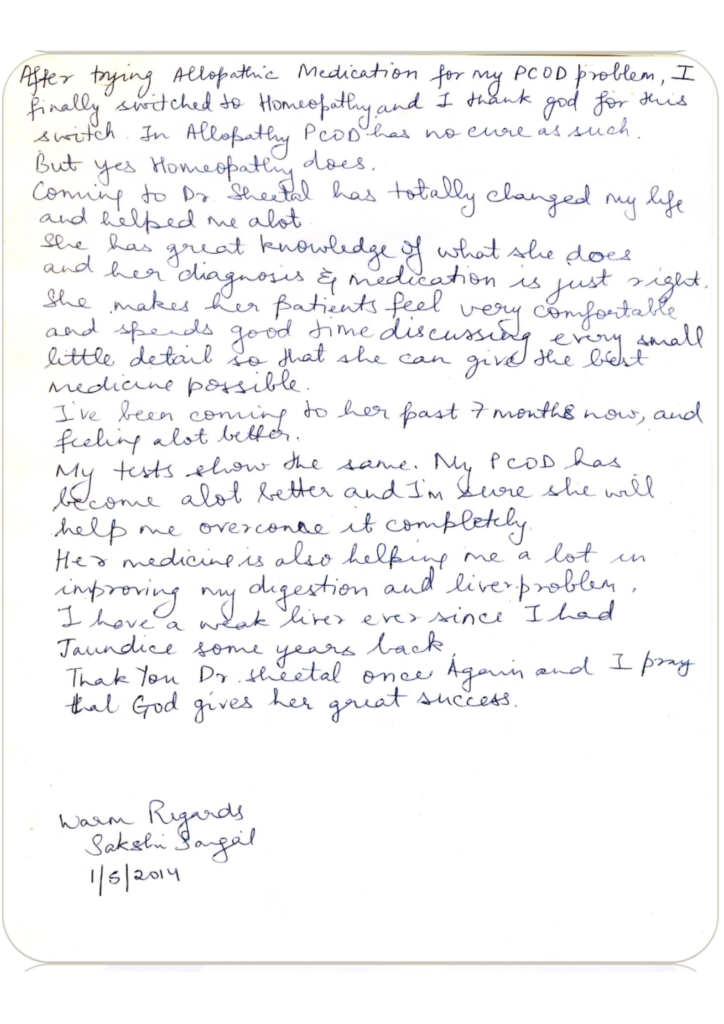 After trying Allopathic Medication for my PCOD problem, I
finally switched to Homeopathy and I thank god for this
switch. In Allopathy PCOD has no cure as such.
But yes Homeopathy does.
Coming to Dr Sheetal has totally changed my life
and helped me alot.
She has great knowledge of what she does
and her diagnosis & medication is just right.
She makes her patients feel very comfortable
and spends good time discussing every small
little detail so that she can give the best
medicine possible.
I've been coming to her past 7 months now, and
feeling alot better.
My tests show the same. My PCOD has
become alot better and I'm sure she will
help me overcome it completely.
Her medicine is also helping me a lot in
improving my digestion and liver problem.
I have a weak liver ever since I had
Jaundice some years back.
Thak You Dr. Sheetal once Again and I pray
that God gives her great success.
Warm Regards
Sakshi
1/5/2014